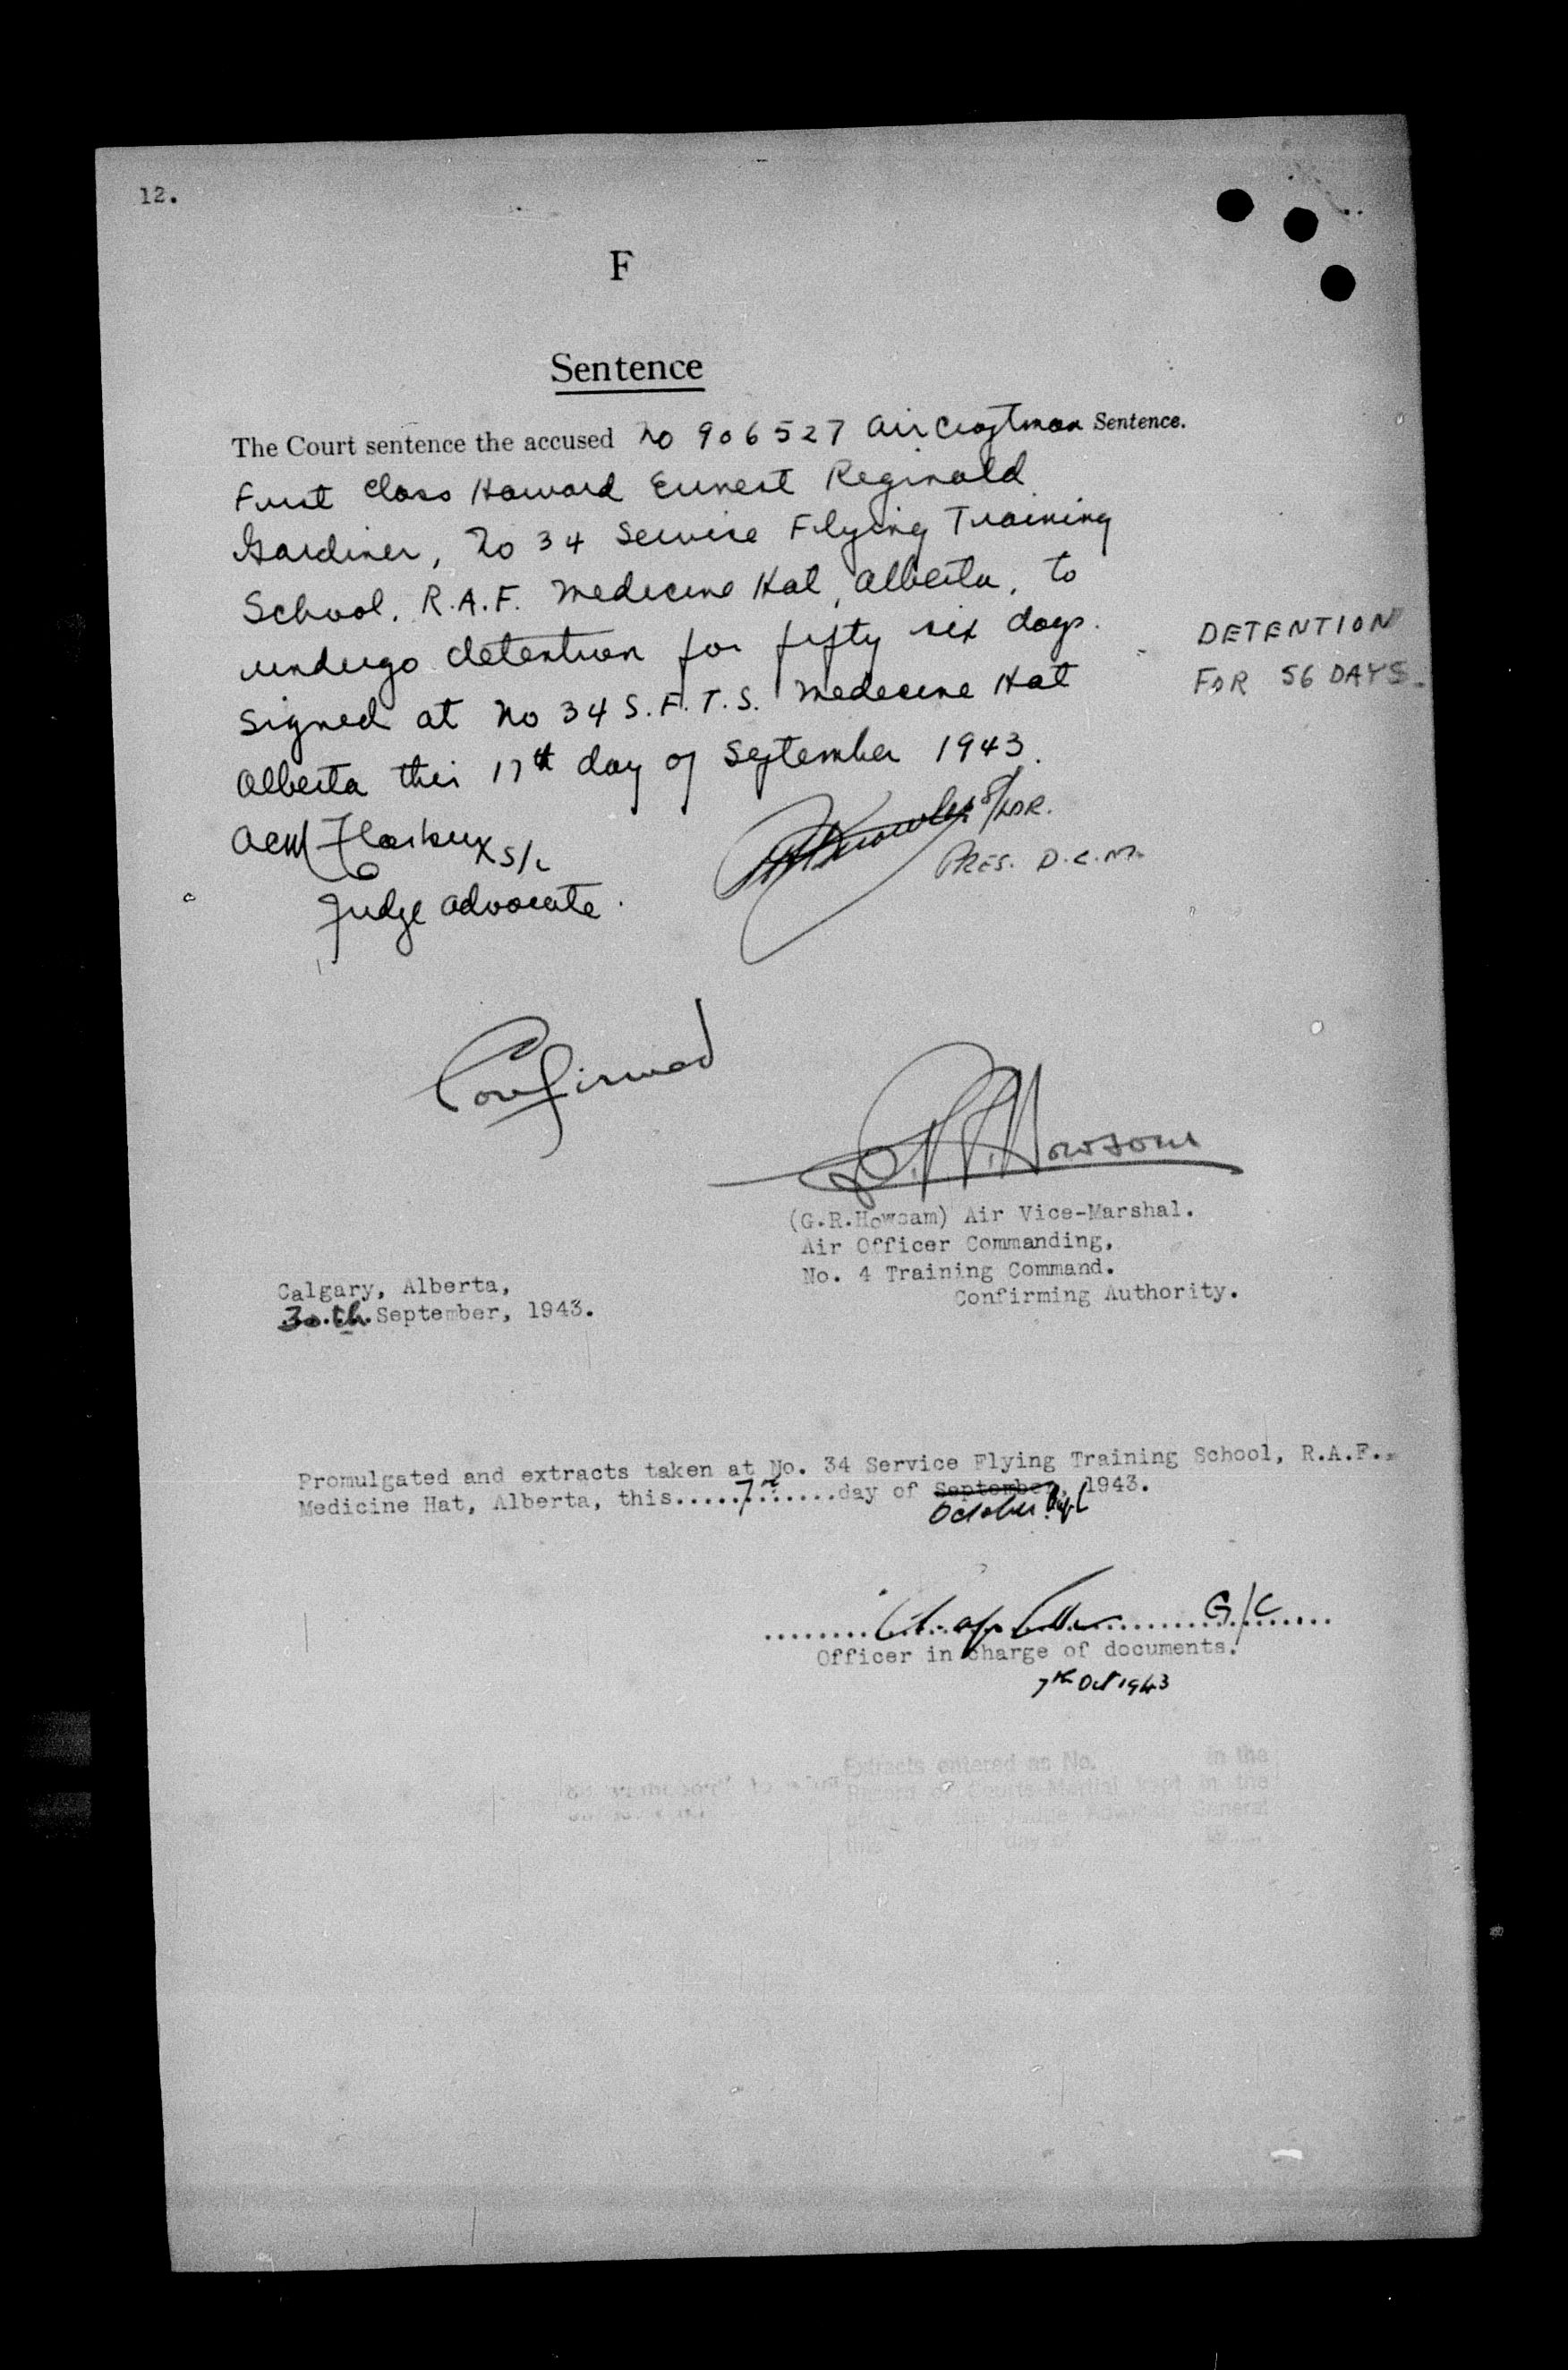 12.
F
Sentence
The Court sentence the accused No 906527 Aircraftman Sentence.
First Class Howard Ernest Reginald
Gardiner, No 34 Service Flying Training
School, R.A.F. Medicine Hat, Alberta, to
undergo detention for fifty six days.
DETENTION
FOR 56 DAYS.
Signed at No 34 S.F.T.S. Medicine Hat
Alberta this 17th day of September 1943.
S/LDR.
PRES. D.C.M.
S/L
Judge Advocate.
Confirmed
G.R. Howsam
(G.R.Howsam) Air Vice-Marshal.
Air Officer Commanding,
No. 4 Training Command.
Confirming Authority.
Calgary, Alberta,
30.th.September, 1943.
Promulgated and extracts taken at No. 34 Service Flying Training School, R.A.F.,
Medicine Hat, Alberta, this.....7th.....day of September, 1943.
October
G/C
Officer in charge of documents.
7th Oct 1943
Extracts entered as No. in the
Record of Courts-Martial kept in the
office of the Judge Advocate General
this day of 19.....